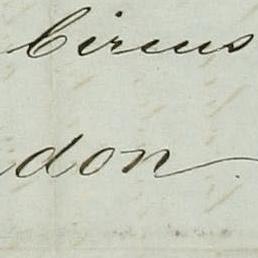 Circus
don